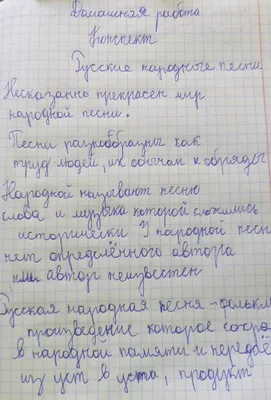 Домашняя работа
Конспект
Русские народные песни
Несказанно прекрасен мир
народной песни.
Песни разнообразны как
труд людей, их обычаи и обряды
Народной называют песню
слова и музыка которой сложились
исторически У народной песн
нет определённого автора
или автор неизвестен
Русская народная песня - фольк
произведение которое сохра
в народной памяти и передаё
из уст в уста, продукт